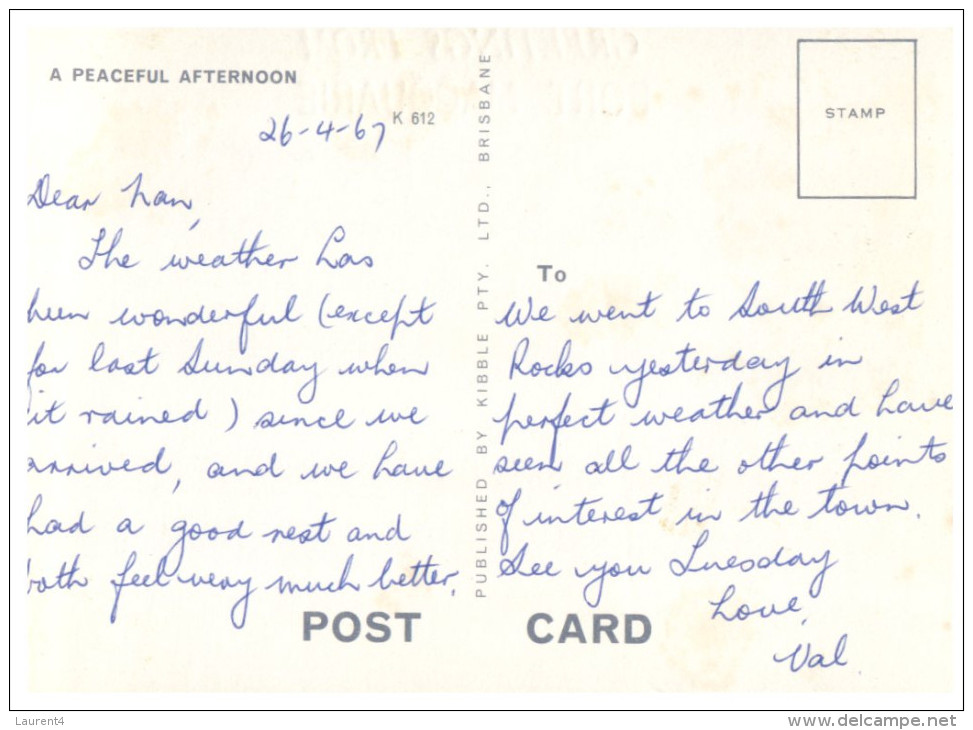 A PEACEFUL AFTERNOON
K 612
26-4-67
Dear Nan,
The weather has
been wonderful (except
for last Sunday when
it rained) since we
arrived, and we have
had a good rest and
both feel very much better.
PUBLISHED BY KIBBLE PTY. LTD., BRISBANE
STAMP
To
We went to South West
Rocks yesterday in
perfect weather and have
seen all the other points
of interest in the town.
See you Tuesday
Love,
Val.
POST CARD
Laurent4
www.delcampe.net